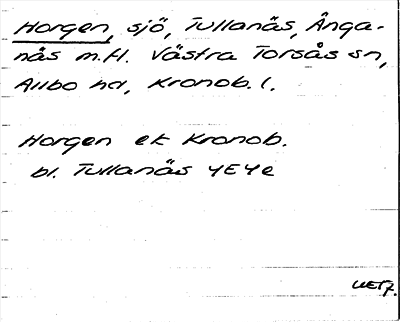 Horgen, sjö, Tullanäs, Ånga-
näs m.fl. Västra Torsås sn,
Allbo hd, Kronob. l.
Horgen ek Kronob.
bl. Tullanäs 4E4e